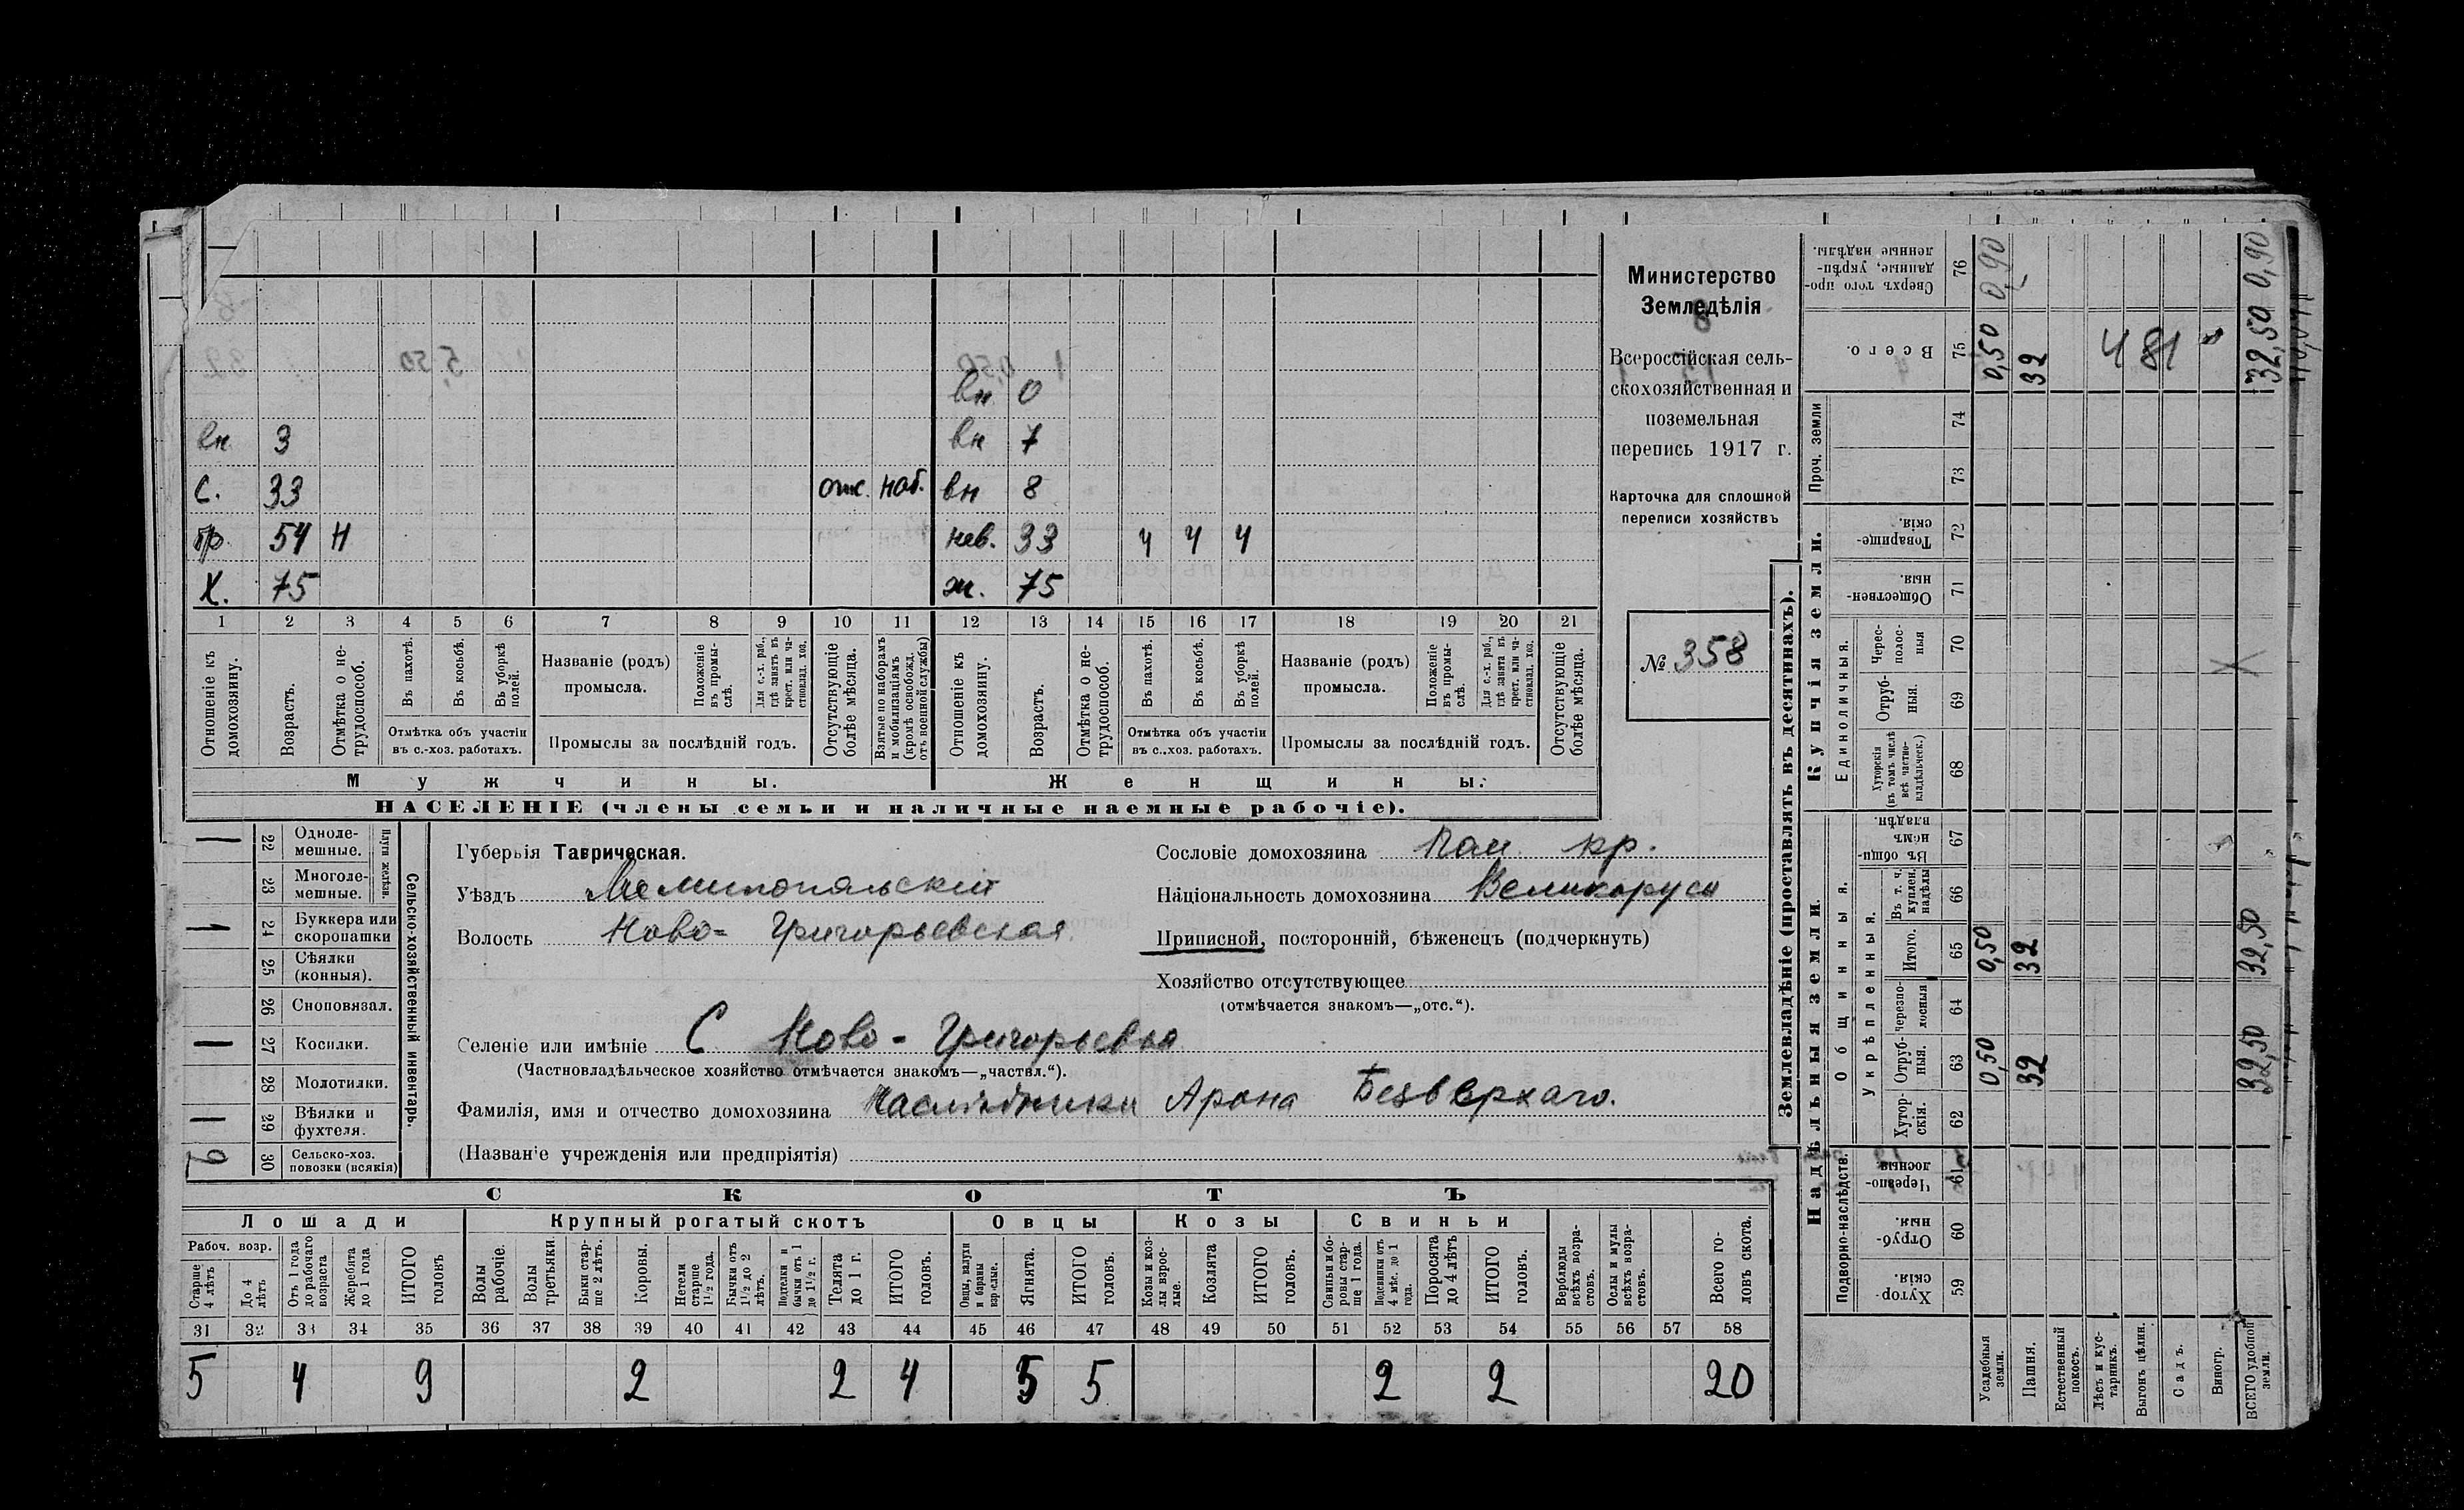 Министерство
Земледѣлія
Всероссійская сель-
скохозяйственная и
поземельная
перепись 1917 г.
Карточка для сплошной
переписи хозяйствъ
№ 358
вн 0
вн 3 вн 7
С. 33 отс. наб. вн 8
бр. 54 Н нев. 33 ч ч ч
Х. 75 ж. 75
1 2 3 4 5 6 7 8 9 10 11 12 13 14 15 16 17 18 19 20 21
Отношеніе къ домохозяину.
Возрастъ.
Отмѣтка о не-трудоспособ.
Въ пахотѣ.
Въ косьбѣ.
Въ уборкѣ полей.
Отмѣтка объ участіи
въ с.-хоз. работахъ.
Названіе (родъ)
промысла.
Положеніе въ промы-слѣ.
Для с.-х. раб., гдѣ занятъ въ крест. или ча-стновлад. хоз.
Промыслы за послѣдній годъ.
Отсутствующіе болѣе мѣсяца.
Взятые по наборамъ и мобилизаціямъ (кромѣ освобожд. отъ военной службы)
Отношеніе къ домохозяину.
Возрастъ.
Отмѣтка о не-трудоспособ.
Въ пахотѣ.
Въ косьбѣ.
Въ уборкѣ полей.
Отмѣтка объ участіи
въ с.-хоз. работахъ.
Названіе (родъ)
промысла.
Положеніе въ промы-слѣ.
Для с.-х. раб., гдѣ занята въ крест. или ча-стновлад. хоз.
Промыслы за послѣдній годъ.
Отсутствующіе болѣе мѣсяца.
Мужчины. Женщины.
НАСЕЛЕНІЕ (члены семьи и наличные наемные рабочіе).
Сельско-хозяйственный инвентарь.
Плуги желѣзн.
1 22 Одноле-мешные.
23 Многоле-мешные.
1 24 Буккера или скоропашки
25 Сѣялки (конныя).
26 Сноповязал.
1 27 Косилки.
28 Молотилки.
1 29 Вѣялки и фухтеля.
30 Сельско-хоз. повозки (всякія)
Губернія Таврическая.
Уѣздъ Мелитопольскій
Волость Ново-Григорьевская
Селеніе или имѣніе С Ново-Григорьевка
(Частновладѣльческое хозяйство отмѣчается знакомъ—„частвл.“).
Фамилія, имя и отчество домохозяина Наслѣдники Арона Безверхаго.
(Названіе учрежденія или предпріятія)
Сословіе домохозяина кр.
Національность домохозяина Великоруссъ
Приписной, посторонній, бѣженецъ (подчеркнуть)
Хозяйство отсутствующее
(отмѣчается знакомъ—„отс.“).
СКОТЪ
Лошади Крупный рогатый скотъ Овцы Козы Свиньи
Рабоч. возр.
Старше 4 лѣтъ
До 4 лѣтъ
Отъ 1 года до рабочаго возраста
Жеребята до 1 года
ИТОГО головъ
Волы рабочіе.
Волы третьяки.
Быки стар-ше 2 лѣтъ.
Коровы.
Нетели старше 1½ года.
Бычки отъ 1½ до 2 лѣтъ.
Подтелки и бычки отъ 1 до 1½ г.
Телята до 1 г.
ИТОГО головъ.
Овцы, валухи и бараны взрослые.
Ягнята.
ИТОГО головъ.
Козы и коз-лы взрос-лые.
Козлята
ИТОГО головъ.
Свиньи и бо-ровы стар-ше 1 года.
Подсвинки отъ 4 мѣс. до 1 года.
Поросята до 4 лѣтъ
ИТОГО головъ.
Верблюды всѣхъ возра-стовъ.
Ослы и мулы всѣхъ возра-стовъ.
Всего го-ловъ скота.
31 32 33 34 35 36 37 38 39 40 41 42 43 44 45 46 47 48 49 50 51 52 53 54 55 56 57 58
5 4 9 2 2 4 5 5 2 2 20
Землевладѣніе (проставлять въ десятинахъ).
Надѣльныя земли. Купчія земли. Проч. земли
Подворно-наслѣдств.
Общинныя.
Укрѣпленныя.
Единоличныя.
Хутор-скія. 59
Отруб-ныя. 60
Черезпо-лосныя 61
Хутор-скія. 62
Отруб-ныя. 63
Черезпо-лосныя 64
Итого. 65
Въ т. ч. куплен. надѣлы 66
Въ общи-номъ владѣн. 67
Хуторскія (въ томъ числѣ всѣ частно-владѣльческ.) 68
Отруб-ныя. 69
Черес-полос-ныя 70
Обществен-ныя. 71
Товарище-скія. 72
73
74
Всего. 75
Сверхъ того про-данные, укрѣп-ленные надѣлы. 76
Усадебныя земли. 0,50 0,50 0,50 0,90
Пашня. 32 32 32
Естественный покосъ.
Лѣсъ и кус-тарникъ.
Выгонъ цѣлин.
Садъ.
Виногр.
481
ВСЕГО удобной земли. 32,50 32,50 32,50 0,90